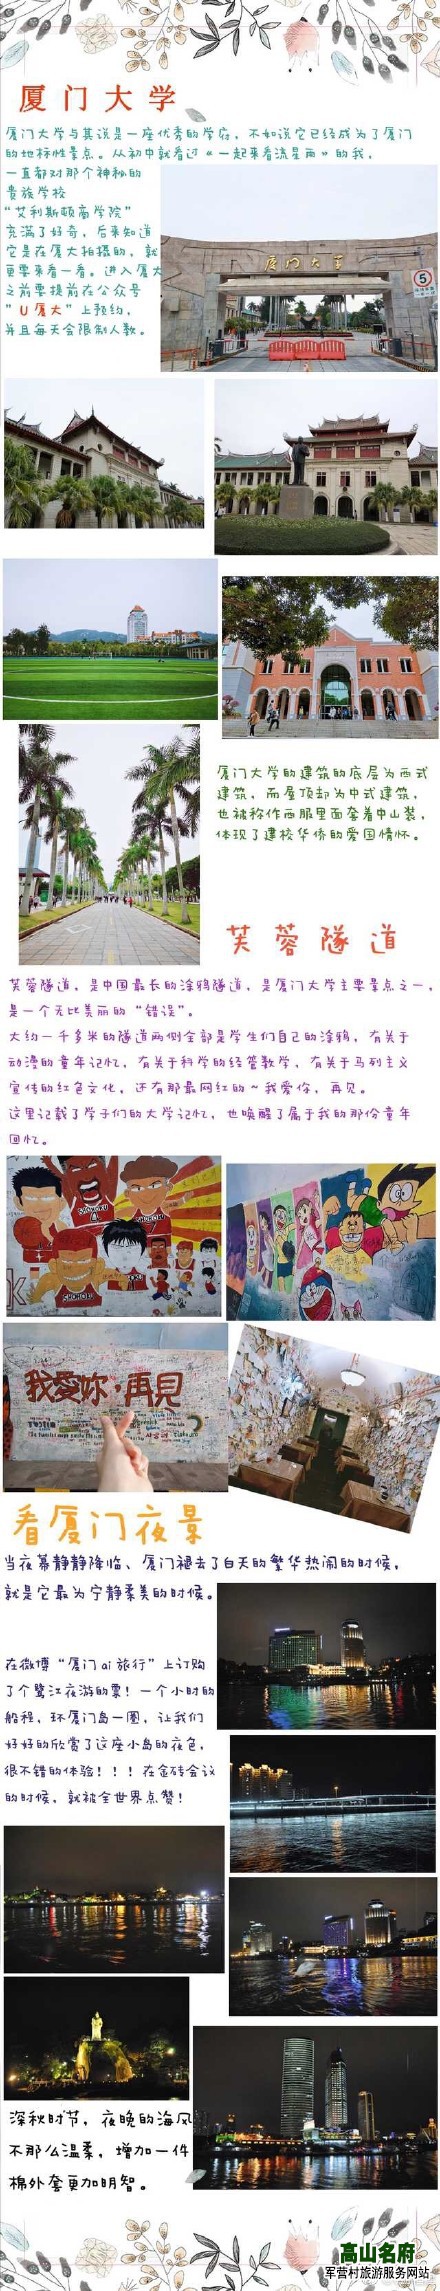 厦门大学
厦门大学与其说是一座优秀的学府，不如说它已经成为了厦门
的地标性景点。从初中就看过《一起来看流星雨》的我，
一直都对那个神秘的
贵族学校
“艾利斯顿商学院”
充满了好奇，后来知道
它是在厦大拍摄的，就
更要来看一看。进入厦大
之前要提前在公众号
“U厦大”上预约，
并且每天会限制人数。
厦门大学
5
厦门大学的建筑的底层为西式
建筑，而屋顶却为中式建筑，
也被称作西服里面套着中山装，
体现了建校华侨的爱国情怀。
芙蓉隧道
芙蓉隧道，是中国最长的涂鸦隧道，是厦门大学主要景点之一，
是一个无比美丽的“错误”。
大约一千多米的隧道两侧全部是学生们自己的涂鸦，有关于
动漫的童年记忆，有关于科学的经管数学，有关于马列主义
宣传的红色文化，还有那最网红的~我爱你，再见。
这里记载了学子们的大学记忆，也唤醒了属于我的那份童年
回忆。
SHOHOKU
SHOHOKU
SHOHOKU
我愛妳，再見
看厦门夜景
当夜幕静静降临、厦门褪去了白天的繁华热闹的时候，
就是它最为宁静柔美的时候。
在微博“厦门ai旅行”上订购
了个鹭江夜游的票！一个小时的
船程，环厦门岛一圈，让我们
好好的欣赏了这座小岛的夜色，
很不错的体验！！！在金砖会议
的时候，就被全世界点赞！
深秋时节，夜晚的海风
不那么温柔，增加一件
棉外套更加明智。
高山名府
军营村旅游服务网站